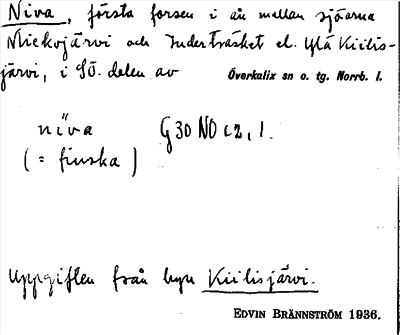 Niva, första forsen i ån mellan sjöarna
Mickojärvi och Inderträsket el. Ylä Kiilis-
järvi, i SÖ. delen av Överkalix sn o. tg. Norrb. l.
niva G30 NO c2, 1.
(= finska)
Uppgiften från byn Kiilisjärvi.
EDVIN BRÄNNSTRÖM 1936.